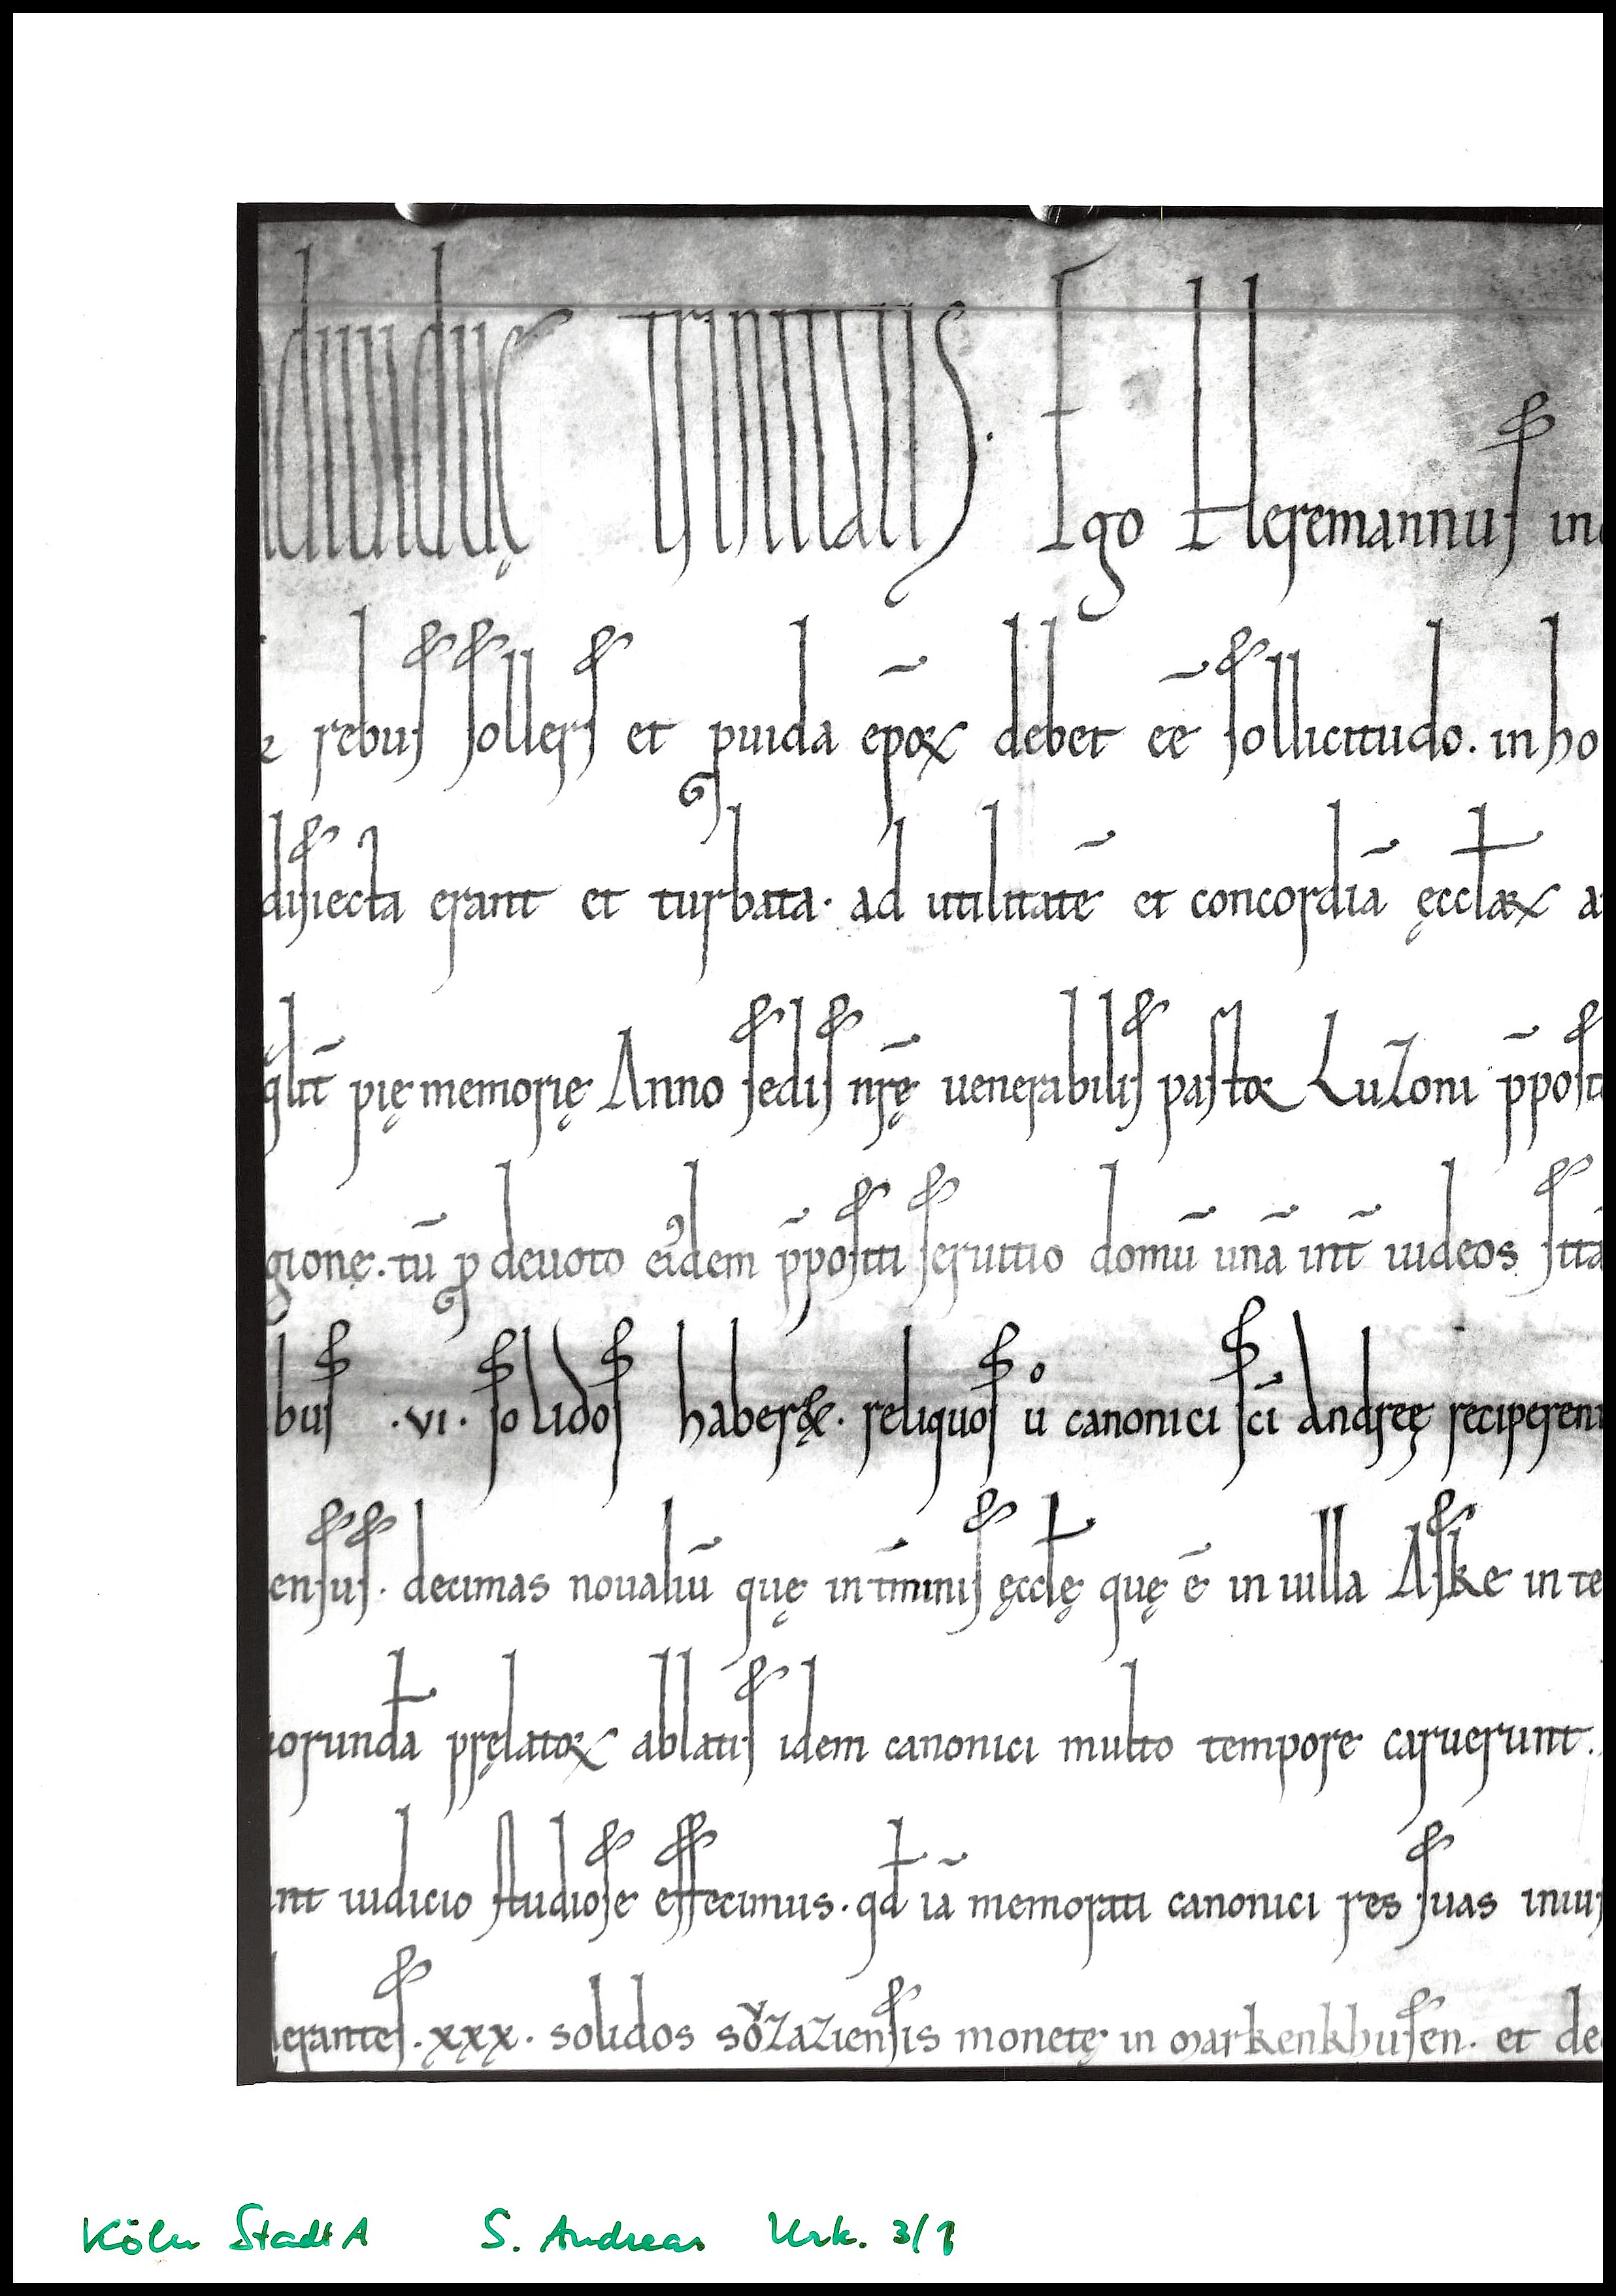 diuiduę trinitatis. Ego Heremannus in
rebus sollers et ꝓuida ep̄oꝝ debet eē sollicitudo. in ho
disiecta erant et turbata. ad utilitatē et concordiā ęccl̄aꝝ a
qlit̄ pię memorię Anno sedis nr̄ę uenerabilis pastor Luzoni p̄posit
gionę. tū ꝓ deuoto eiꝰdem p̄positi seruitio domū unā int̄ iudeos sitā
bus .vi. solidos haberꝫ. reliquos uͦ canonici sc̄i Andreę reciperen
ensus. decimas noualiū quę in t̄minis ęccl̄ę quę ē in uilla Aske in te
orundā pręlatoꝝ ablatis idem canonici multo tempore caruerunt.
nt iudicio studiose effecimus. qd̄ iā memorati canonici res suas iniu
erantes. xxx. solidos soͮzaziensis monetę in markenkhusen. et de
Köln StadtA S. Andreas Urk. 3/1